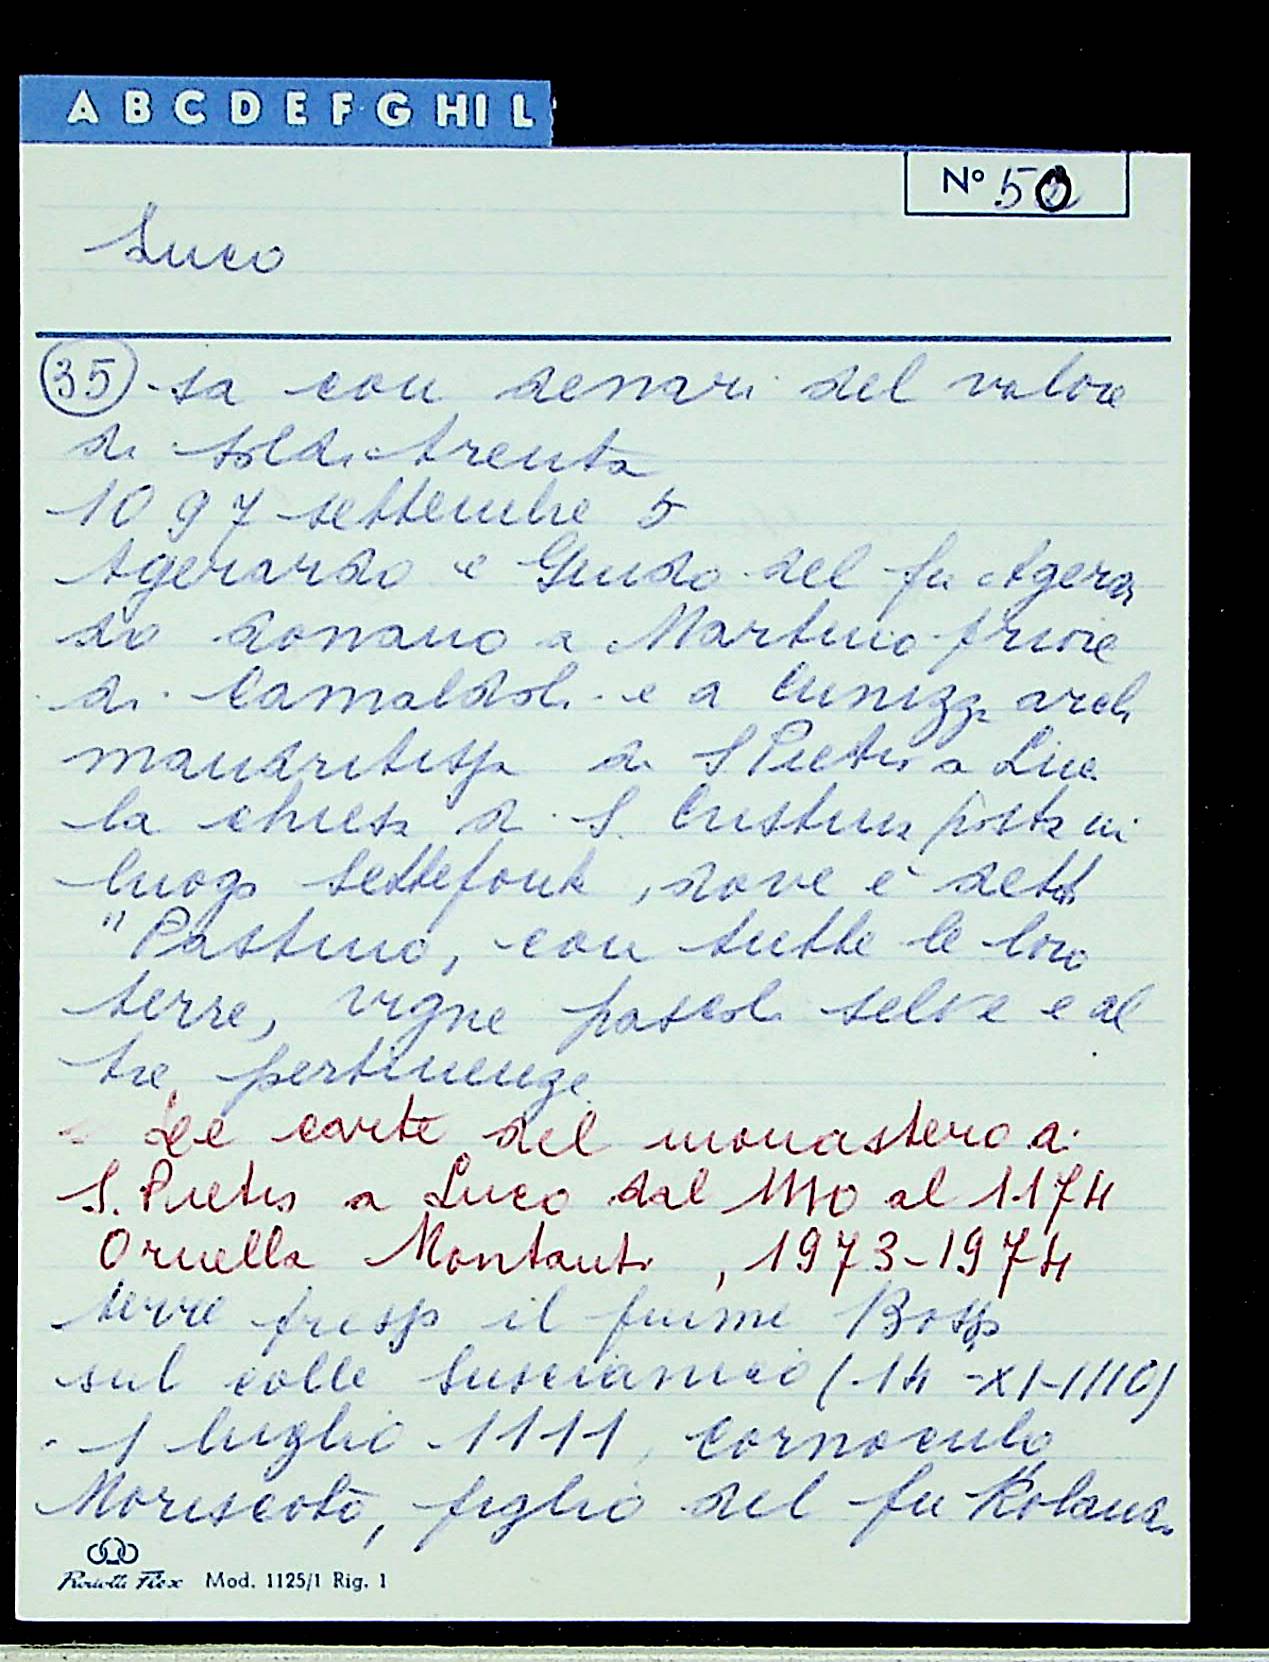 A B C D E F G HI L
Nº 50
Luco
35 sa con denari del valore
di soldi trenta
1097 settembre 5
Agerardo e Guido del fu Agerar
do donano a Martino priore
di Camaldoli e a Cunizza archi
mandritissa di S Pietro a Luco
la chiesa di S. Cristina posta in
luogo Settefonti, dove è detto
"Pastino, con tutte le loro
terre, vigne pascoli selve e al
tre pertinenze
Le carte del monastero di
S. Pietro a Luco dal 1110 al 1174
Ornella Montanti, 1973-1974
terre presso il fiume Bosso
sul colle Susciamico (14-XI-1110)
1 luglio 1111, Cornoculo
Moriscoto, figlio del fu Roland
Mod. 1125/1 Rig. 1